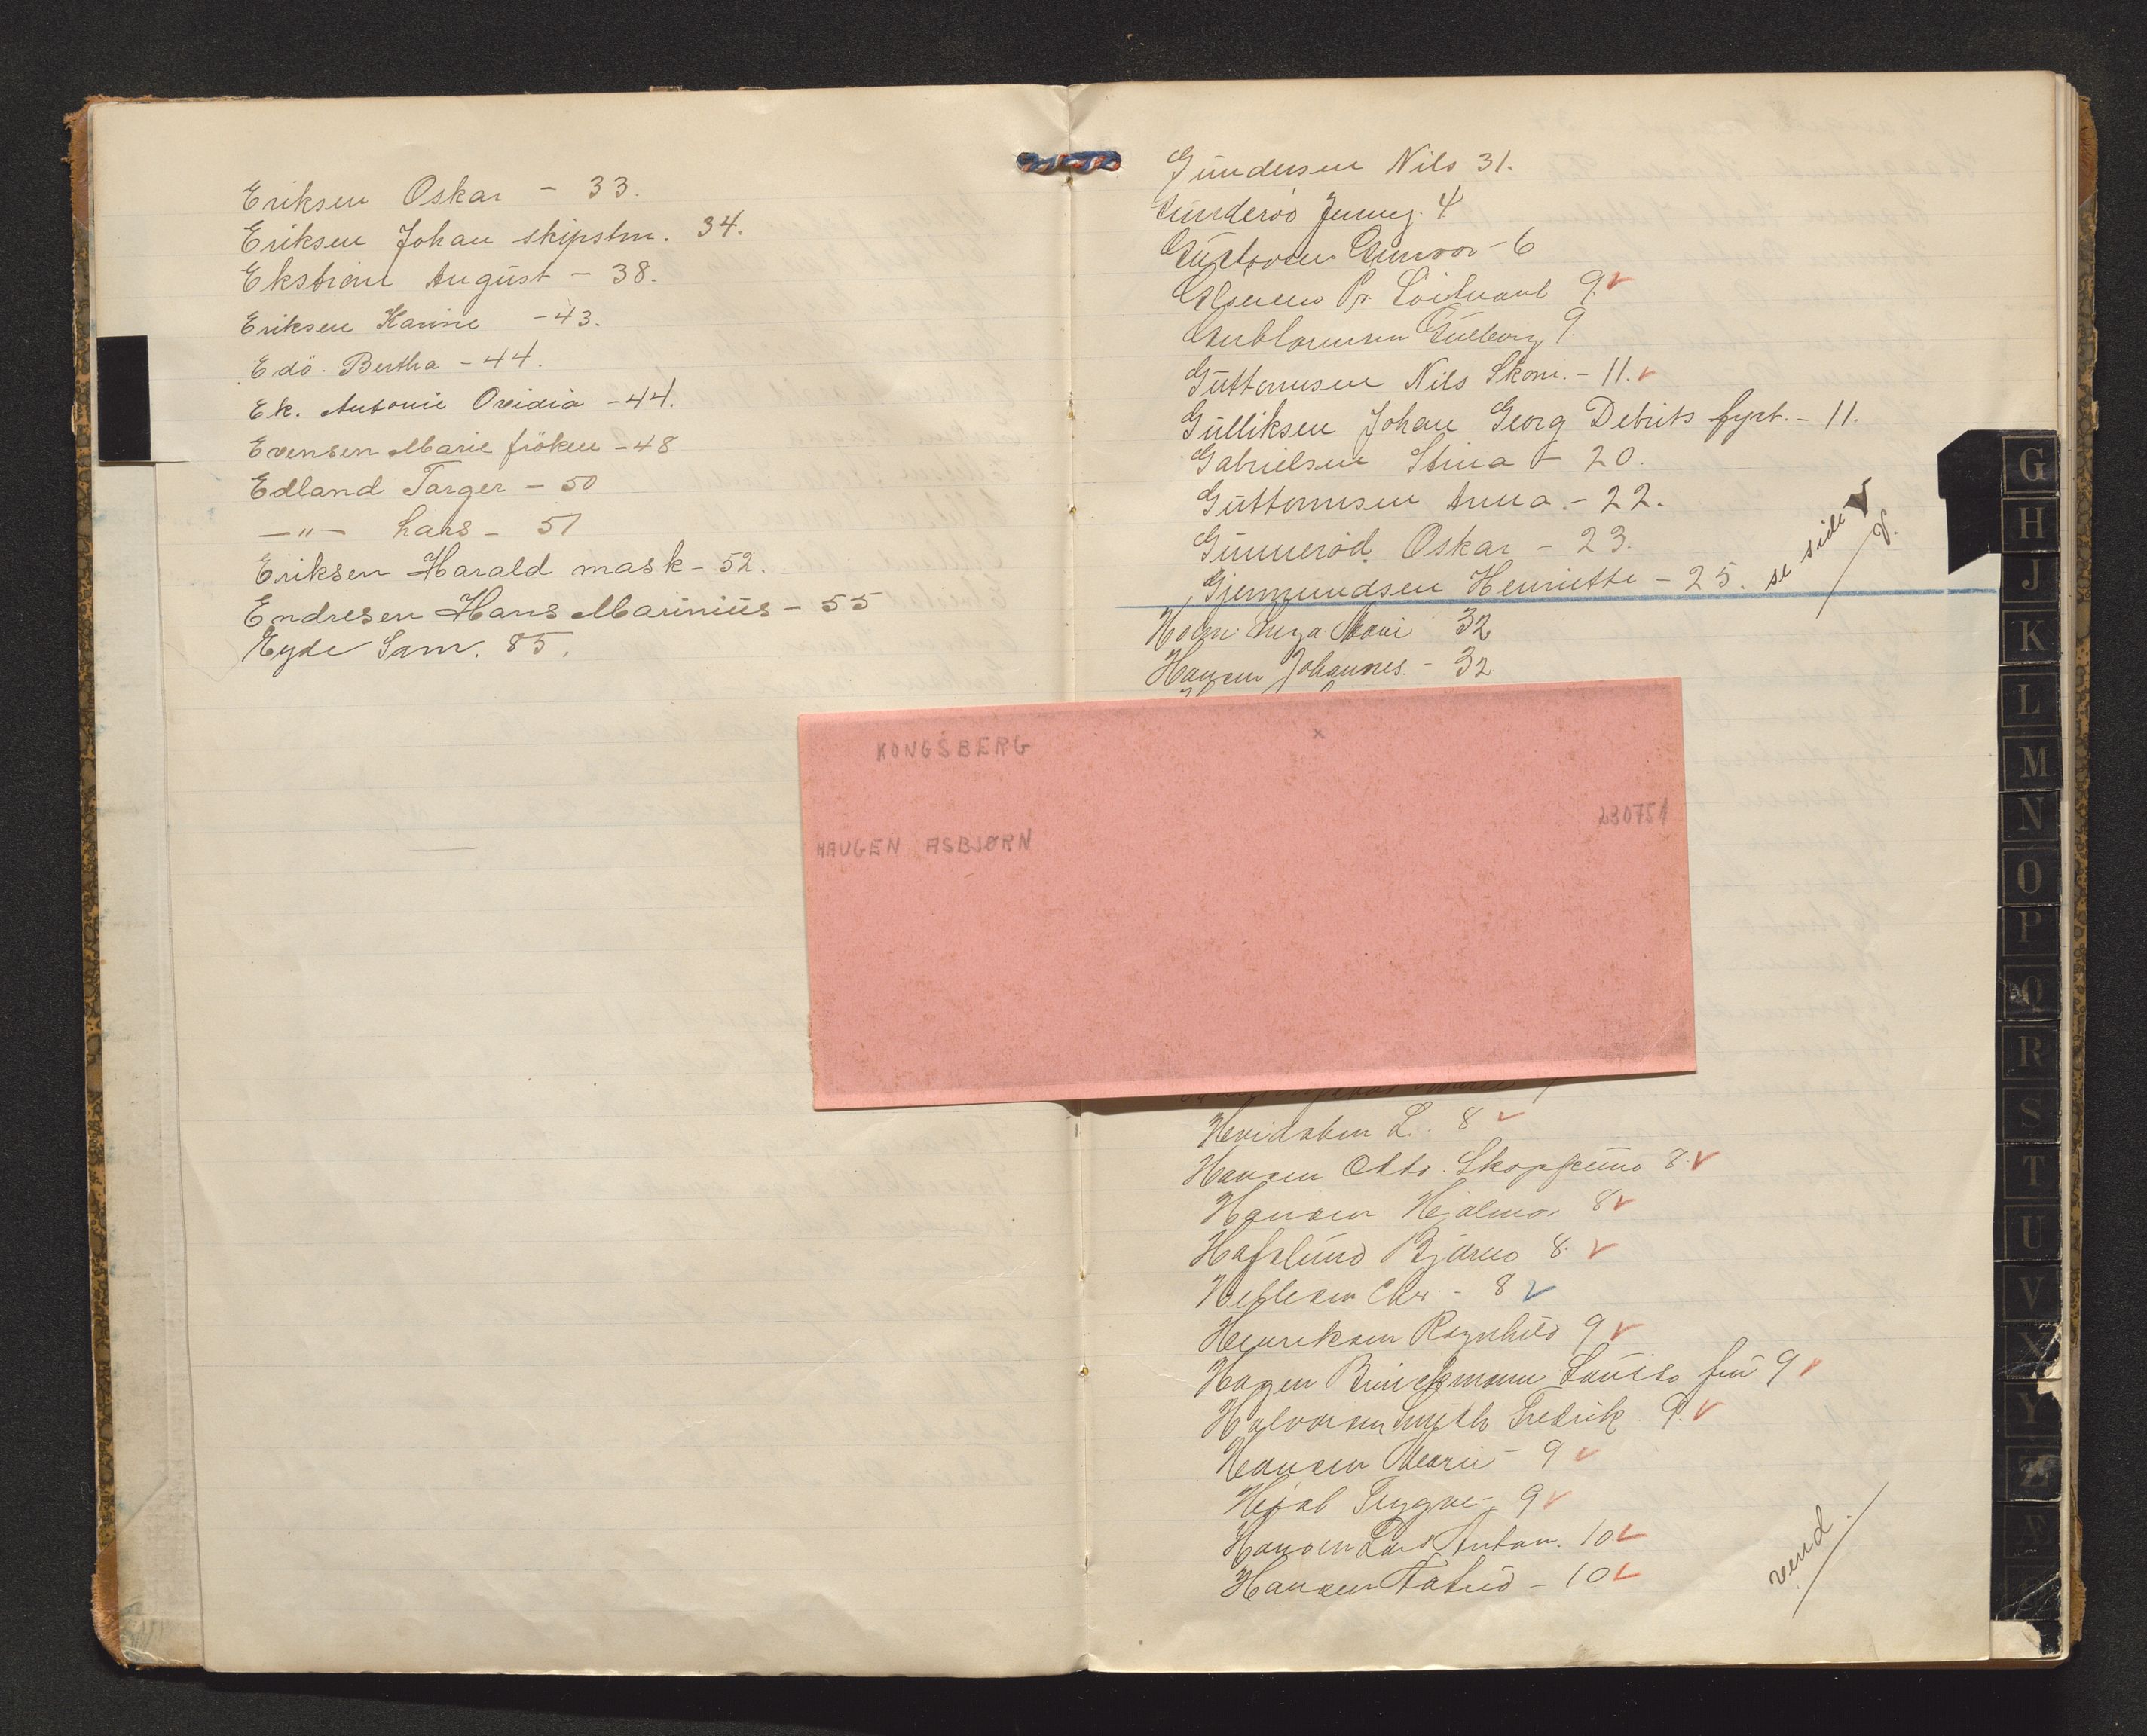 Eriksen Oskar - 33.
Eriksen Johan skipstm. 34.
Ekström August - 38.
Eriksen Karine - 43.
Edö. Bertha - 44.
Ek. Antonie Ovidia - 44.
Evensen Marie fröken - 48
Edland Targer - 50
—"— Lars - 51
Eriksen Harald mask - 52.
Endresen Hans Marinius - 55
Eyde Sam. 85.
Gundersen Nils 31.
4
Gunvor - 6
9
Gulborg 9
Guttormsen Nils Skom. - 11.
Gulliksen Johan Georg Debits fyrb. - 11.
Gabrielsen Stina - 20.
Guttormsen Anna. - 22.
Gunneröd Oskar - 23.
Gjermundsen Henriette - 25. se side V
V.
Holm Inga Marie 32
Hansen Johannes. - 32
KONGSBERG
x
230751
HAUGEN ASBJØRN
L. 8
Hansen Otto. 8.
Hansen Hjalmar 8
Hafslund Bjarne 8.
Chr. - 8
Henriksen Ragnhild 9
Hagen Brinckmann Louise fru 9
Halvorsen Smith Fredrik 9.
Hansen Marie - 9
Trygve - 9
Hansen Lars Anton. 10
Hansen Astrid - 10
vend.
G
H
J
K
L
M
N
O
P
Q
R
S
T
U
V
X
Y
Z